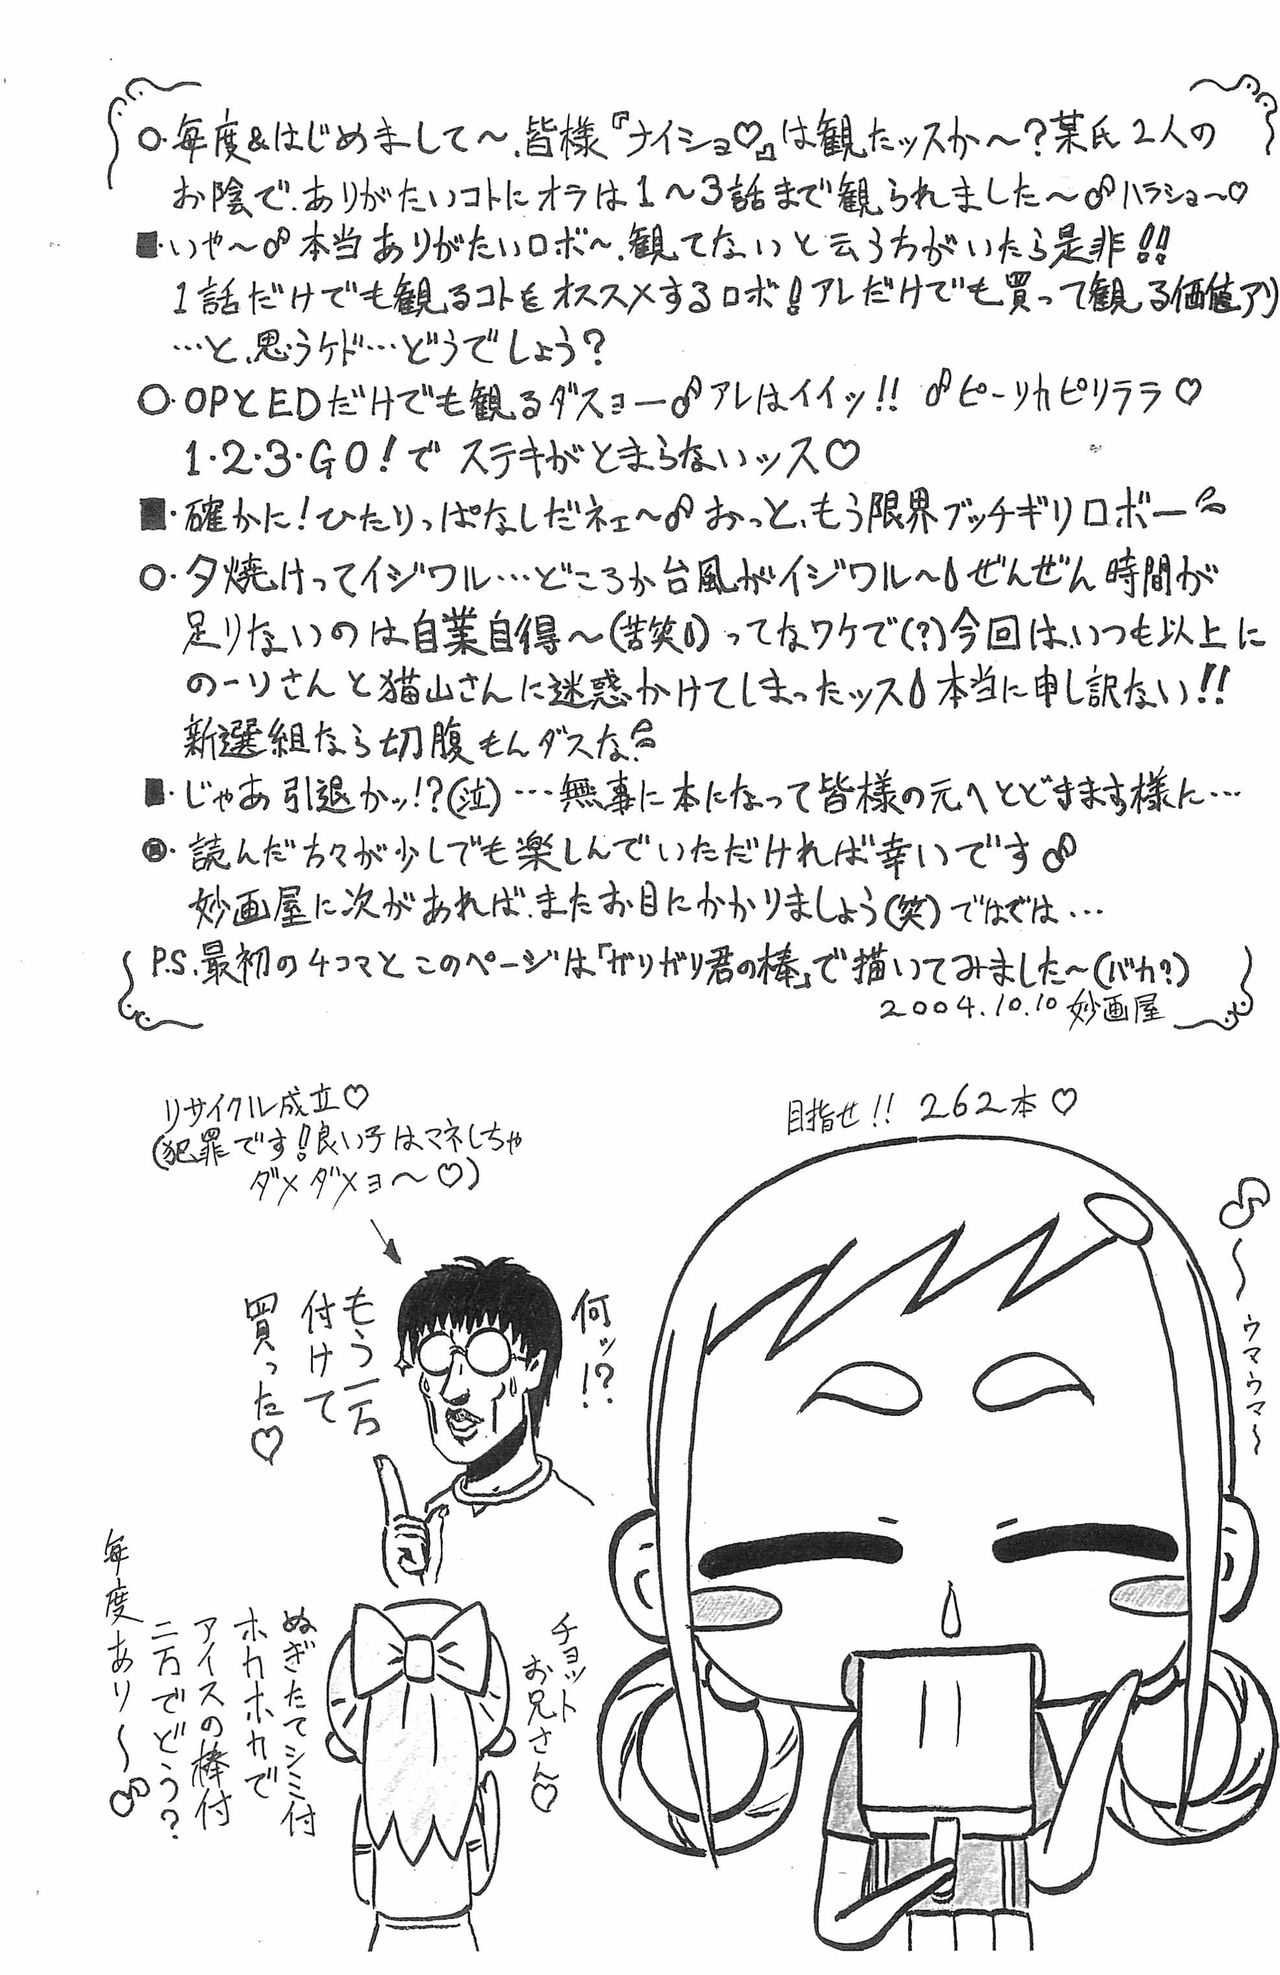 ○・毎度&はじめまして〜、皆様『ナイショ♡』は観たッスか〜?某氏2人の
お陰で、ありがたいコトにオラは1〜3話まで観られました〜♂ハラショ〜♡
■・いや〜♂本当ありがたいロボ〜、観てないと云う方がいたら是非!!
1話だけでも観るコトをオススメするロボ!アレだけでも買って観る価値アリ
…と、思うケド…どうでしょう?
○・OPとEDだけでも観るダスョー♂アレはイイッ!! ♂ピーリカピリララ♡
1・2・3・GO!でステキがとまらないッス♡
■・確かに!ひたりっぱなしだネェ〜♂おっと、もう限界ブッチギリロボー
○・夕焼けってイジワル…どころか台風がイジワル〜 ぜんぜん時間が
足りないのは自業自得〜(苦笑)ってなワケで(?)今回は、いつも以上に
のーりさんと猫山さんに迷惑かけてしまったッス 本当に申し訳ない!!
新選組なら切腹もんダスな
■・じゃあ引退かッ!?(泣)…無事に本になって皆様の元へとどきます様に…
◉・読んだ方々が少しでも楽しんでいただければ幸いです♂
妙画屋に次があれば、またお目にかかりましょう(笑)ではでは…
P.S.最初の4コマとこのページは「ガリガリ君の棒」で描いてみました〜(バカ?)
2004.10.10 妙画屋
目指せ!! 262本♡
〜ウマウマ〜